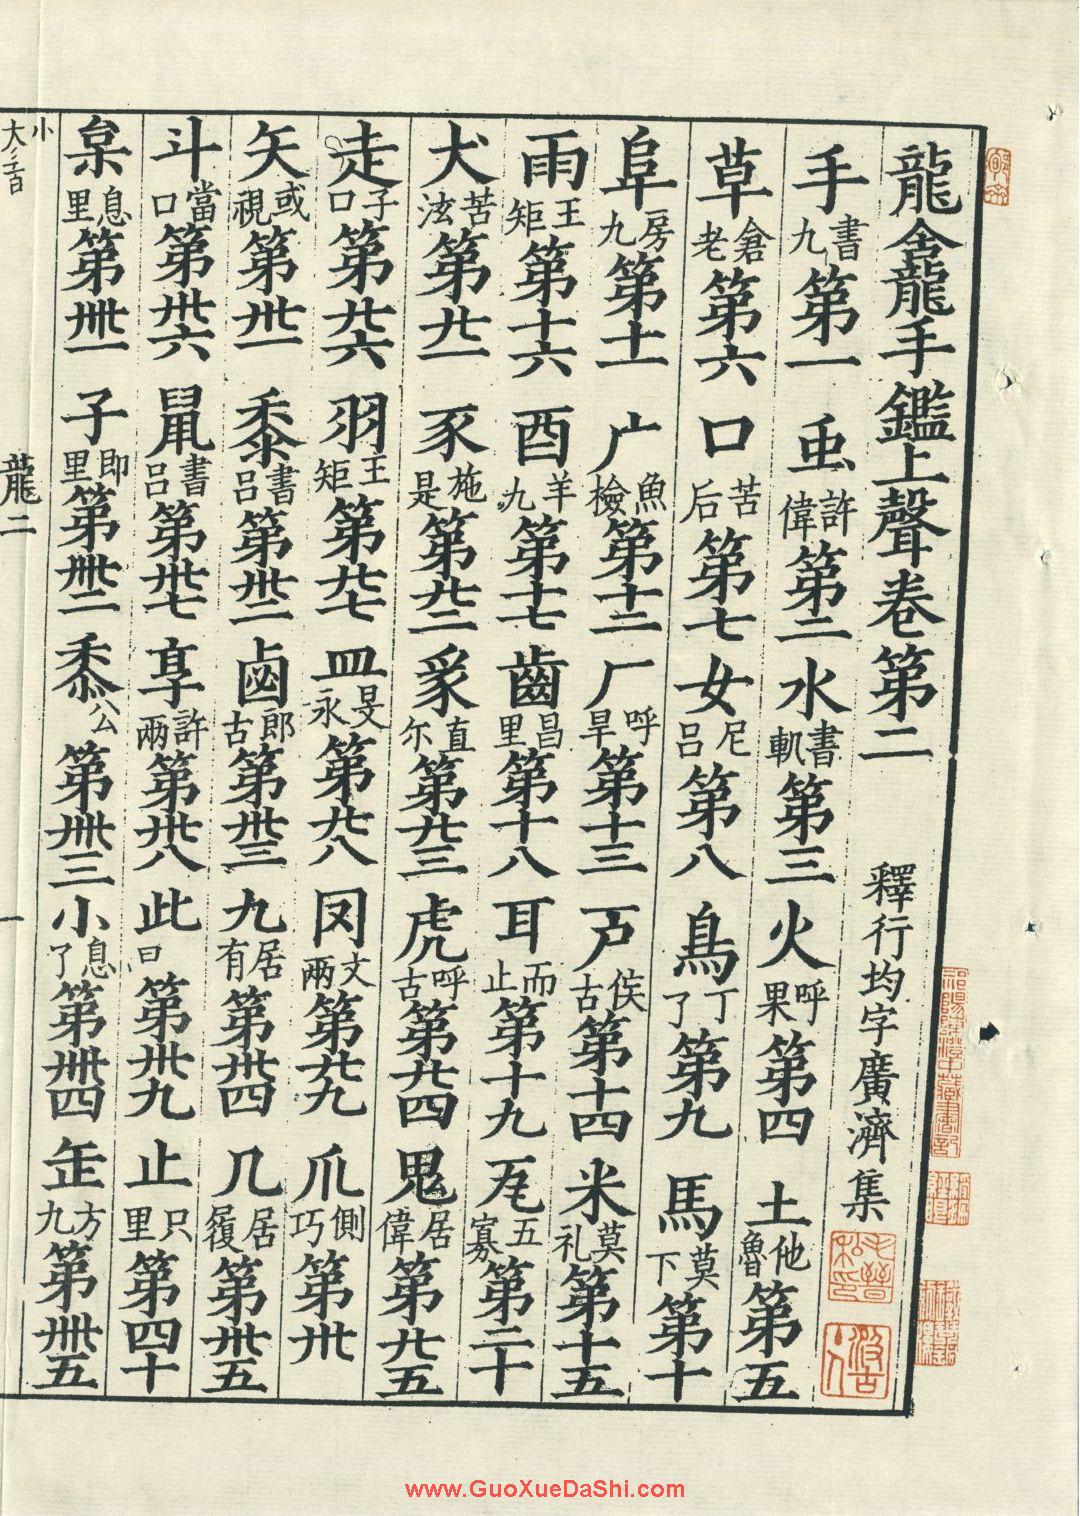 龍龕手鑑上聲卷第二　釋行均字廣濟集
手書九第一　虫許偉第二　水書軌第三　火呼果第四　土他魯第五
草倉老第六　口苦后第七　女尼呂第八　鳥丁了第九　馬莫下第十
阜房九第十一　广魚檢第十二　厂呼旱第十三　戶侯古第十四　米莫礼第十五
雨王矩第十六　酉羊九第十七　齒昌里第十八　耳而止第十九　瓦五寡第二十
犬苦泫第廿一　豕施是第廿二　豸直尓第廿三　虎呼古第廿四　鬼居偉第廿五
走子口第廿六　羽王矩第廿七　皿旻永第廿八　罔文兩第廿九　爪側巧第卅
矢式視第卅一　黍書呂第卅二　鹵郎古第卅三　九居有第卅四　几居履第卅五
斗當口第卅六　鼠書呂第卅七　享許兩第卅八　此第卅九　止只里第四十
枲息里第卌一　子即里第卌二　第卌三　小息了第卌四　缶方九第卌五
龍二
一
www.GuoXueDaShi.com